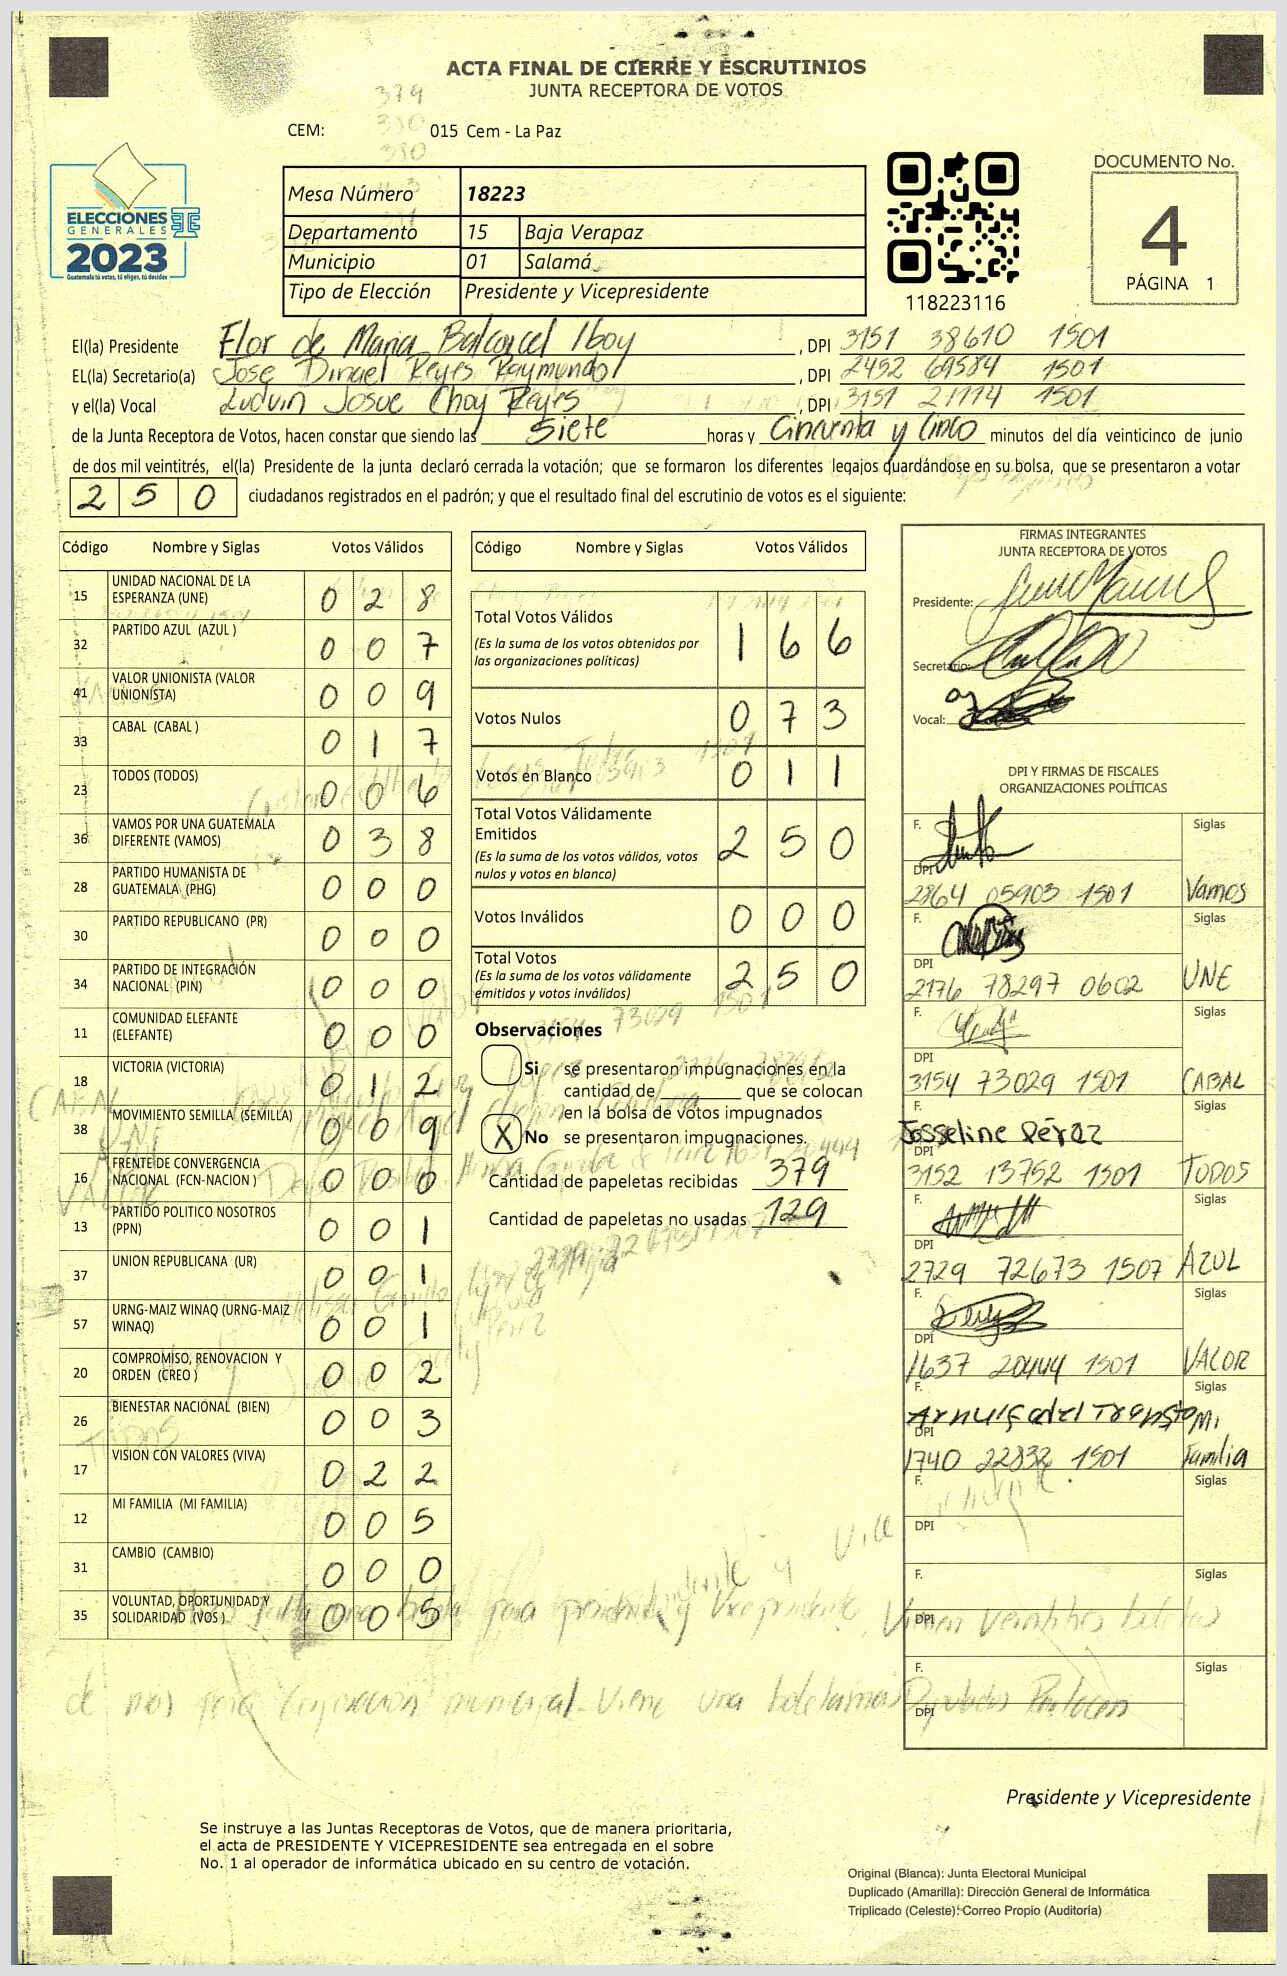 ACTA FINAL DE CIERRE Y ESCRUTINIOS
JUNTA RECEPTORA DE VOTOS
379
CEM: 015 Cem - La Paz
ELECCIONES
GENERALES
2023
Guatemala tú votas, tú eliges, tú decides
Mesa Número 18223
Departamento 15 Baja Verapaz
Municipio 01 Salamá
Tipo de Elección Presidente y Vicepresidente
118223116
DOCUMENTO No.
4
PÁGINA 1
El(la) Presidente Flor de Maria Balcarcel Iboy, DPI 3151 38610 1501
EL(la) Secretario(a) Jose Dinael Reyes Raymundo, DPI 2452 69584 1501
y el(la) Vocal Luduin Josue Choy Reyes, DPI 3151 21114 1501
de la Junta Receptora de Votos, hacen constar que siendo las Siete horas y Cincuenta y Cinco minutos del día veinticinco de junio
de dos mil veintitrés, el(la) Presidente de la junta declaró cerrada la votación; que se formaron los diferentes legajos guardándose en su bolsa, que se presentaron a votar
250 ciudadanos registrados en el padrón; y que el resultado final del escrutinio de votos es el siguiente:
Código Nombre y Siglas Votos Válidos
15 UNIDAD NACIONAL DE LA ESPERANZA (UNE) 0 2 8
32 PARTIDO AZUL (AZUL ) 0 0 7
41 VALOR UNIONISTA (VALOR UNIONISTA) 0 0 9
33 CABAL (CABAL ) 0 1 7
23 TODOS (TODOS) 0 0 6
36 VAMOS POR UNA GUATEMALA DIFERENTE (VAMOS) 0 3 8
28 PARTIDO HUMANISTA DE GUATEMALA (PHG) 0 0 0
30 PARTIDO REPUBLICANO (PR) 0 0 0
34 PARTIDO DE INTEGRACIÓN NACIONAL (PIN) 0 0 0
11 COMUNIDAD ELEFANTE (ELEFANTE) 0 0 0
18 VICTORIA (VICTORIA) 0 1 2
38 MOVIMIENTO SEMILLA (SEMILLA) 0 0 9
16 FRENTE DE CONVERGENCIA NACIONAL (FCN-NACION ) 0 0 0
13 PARTIDO POLITICO NOSOTROS (PPN) 0 0 1
37 UNION REPUBLICANA (UR) 0 0 1
57 URNG-MAIZ WINAQ (URNG-MAIZ WINAQ) 0 0 1
20 COMPROMISO, RENOVACION Y ORDEN (CREO ) 0 0 2
26 BIENESTAR NACIONAL (BIEN) 0 0 3
17 VISION CON VALORES (VIVA) 0 2 2
12 MI FAMILIA (MI FAMILIA) 0 0 5
31 CAMBIO (CAMBIO) 0 0 0
35 VOLUNTAD, OPORTUNIDAD Y SOLIDARIDAD (VOS ) 0 0 5
Código Nombre y Siglas Votos Válidos
Total Votos Válidos 1 6 6
(Es la suma de los votos obtenidos por
las organizaciones políticas)
Votos Nulos 0 7 3
Votos en Blanco 0 1 1
Total Votos Válidamente
Emitidos 2 5 0
(Es la suma de los votos válidos, votos
nulos y votos en blanco)
Votos Inválidos 0 0 0
Total Votos 2 5 0
(Es la suma de los votos válidamente
emitidos y votos inválidos)
Observaciones
Si se presentaron impugnaciones en la
cantidad de ________ que se colocan
en la bolsa de votos impugnados
X No se presentaron impugnaciones.
Cantidad de papeletas recibidas 379
Cantidad de papeletas no usadas 129
FIRMAS INTEGRANTES
JUNTA RECEPTORA DE VOTOS
Presidente:
Secretario:
Vocal:
DPI Y FIRMAS DE FISCALES
ORGANIZACIONES POLÍTICAS
F. Siglas
DPI
2864 05903 1501 Vamos
F. Siglas
DPI
2176 78297 0602 UNE
F. Siglas
DPI
3154 73029 1501 CABAL
F. Siglas
Josseline Pérez
DPI
3152 13752 1501 TODOS
F. Siglas
DPI
2729 72673 1507 AZUL
F. Siglas
DPI
1637 20444 1501 VALOR
F. Siglas
DPI
1740 22832 1501 Mi Familia
F. Siglas
DPI
F. Siglas
DPI
F. Siglas
DPI
Presidente y Vicepresidente
Se instruye a las Juntas Receptoras de Votos, que de manera prioritaria,
el acta de PRESIDENTE Y VICEPRESIDENTE sea entregada en el sobre
No. 1 al operador de informática ubicado en su centro de votación.
Original (Blanca): Junta Electoral Municipal
Duplicado (Amarilla): Dirección General de Informática
Triplicado (Celeste): Correo Propio (Auditoría)